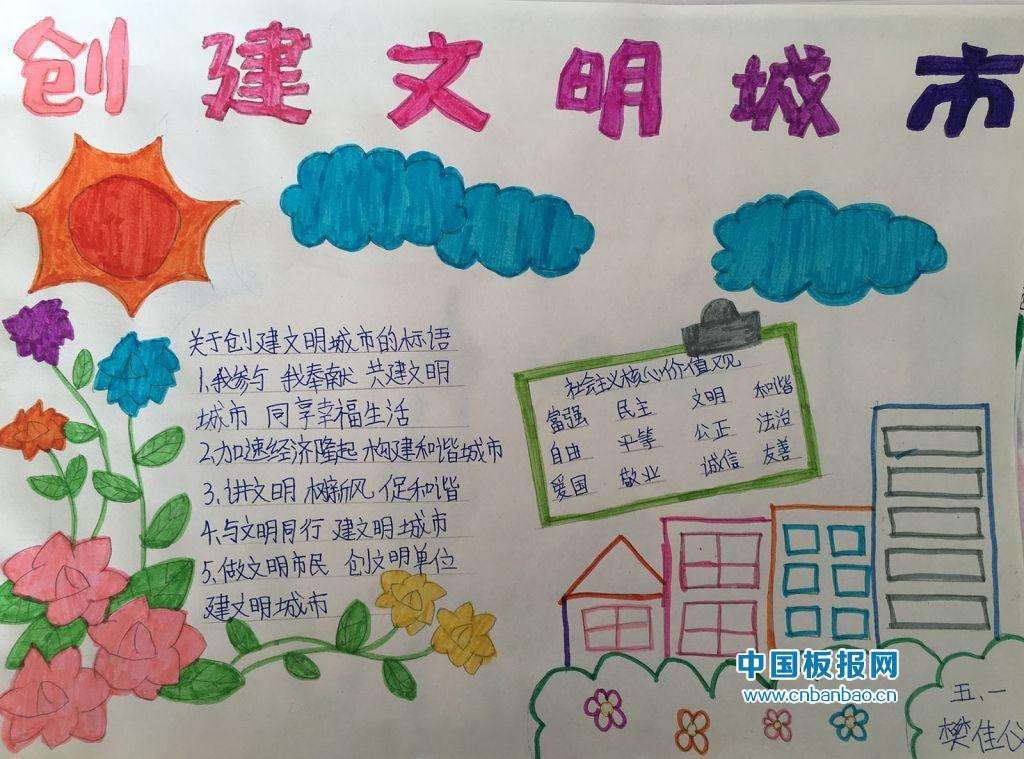 创建文明城市
关于创建文明城市的标语
1.我参与 我奉献 共建文明
城市 同享幸福生活
2.加速经济隆起 构建和谐城市
3.讲文明 树新风 促和谐
4.与文明同行 建文明城市
5.做文明市民 创文明单位
建文明城市
社会主义核心价值观
富强 民主 文明 和谐
自由 平等 公正 法治
爱国 敬业 诚信 友善
中国板报网
www.cnbanbao.cn
五、一
樊佳仪